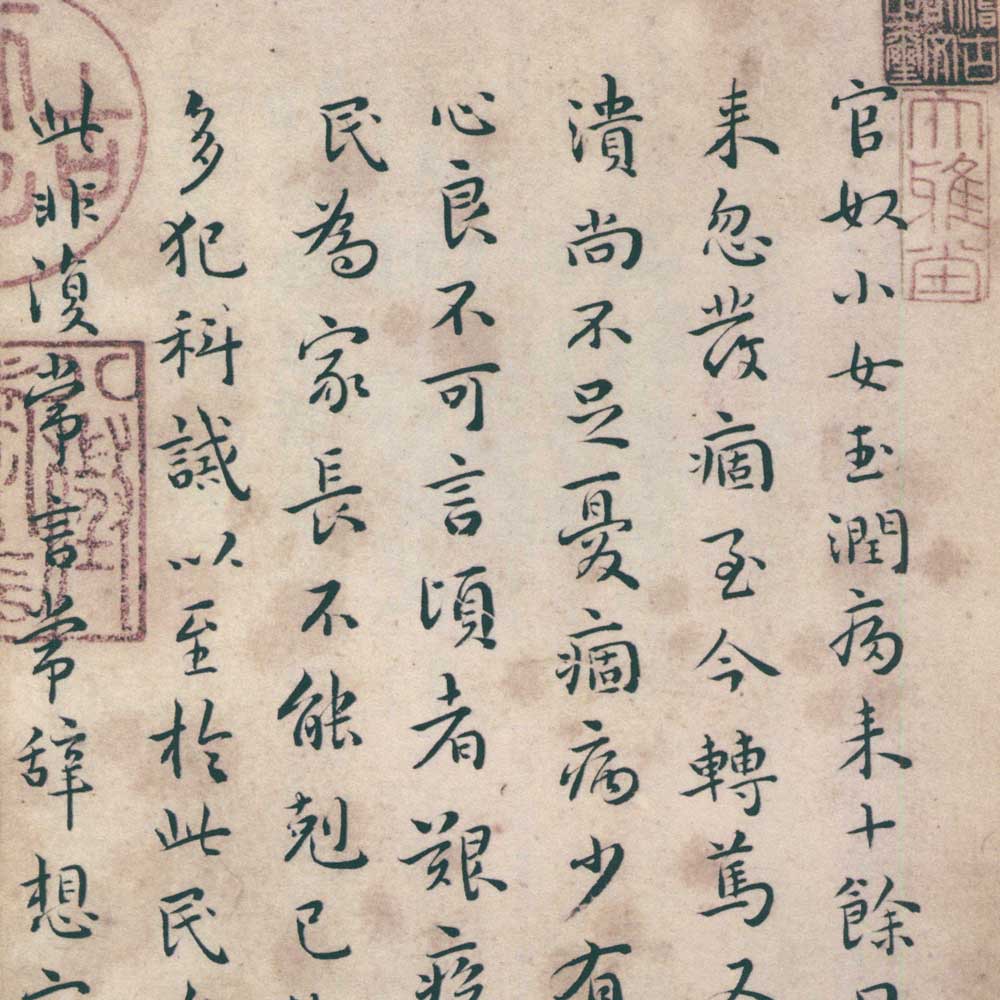 官奴小女玉潤病来十餘
来忽發痼至今轉篤又
潰尚不足憂痼病少有
心良不可言頃者艱疾
民為家長不能剋己
多犯科誡以至於此民
此非復常言常辭想
大雅堂